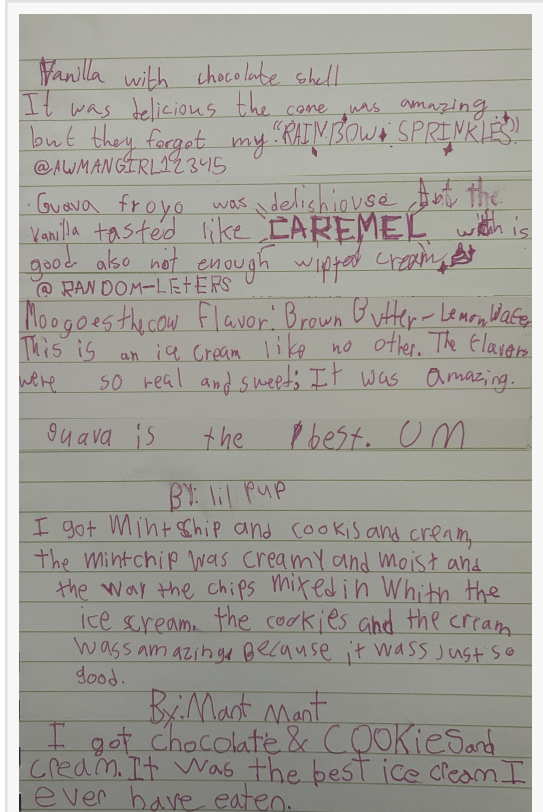 Vanilla with chocolate shell
It was delicious the cone was amazing
but they forgot my "RAINBOW SPRINKLES"
@AWMANGIRL12345
Guava froyo was delishiouse but the
vanilla tasted like CAREMEL witch is
good also not enough wipped cream
@RANDOM-LETERS
Moogoesthecow Flavor: Brown Butter-Lemon Wafe
This is an ice cream like no other. The flavors
were so real and sweet; It was amazing.
guava is the best. UM
BY: lil PuP
I got Mint chip and cookis and cream,
the mintchip was creamy and moist and
the way the chips mixed in whith the
ice scream. the cookies and the crram
wass amazing. Because it wass just so
good.
By: Mant Mant
I got chocolate & COOKies and
cream. It was the best ice cream I
ever have eaten.